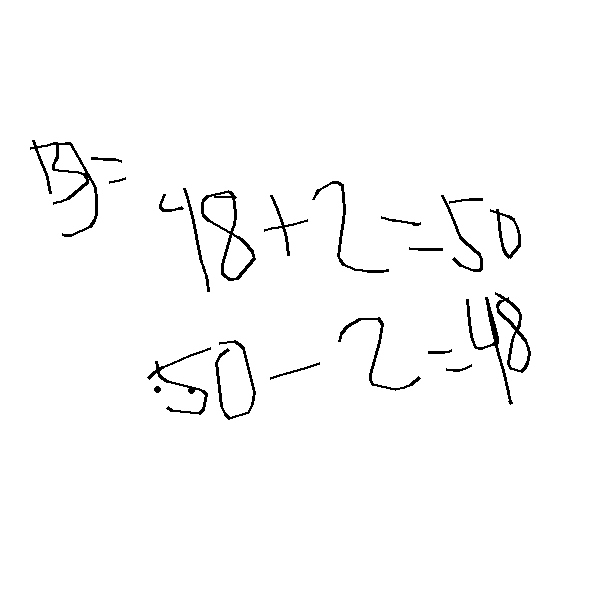 B)=
48+2=50
50-2=48